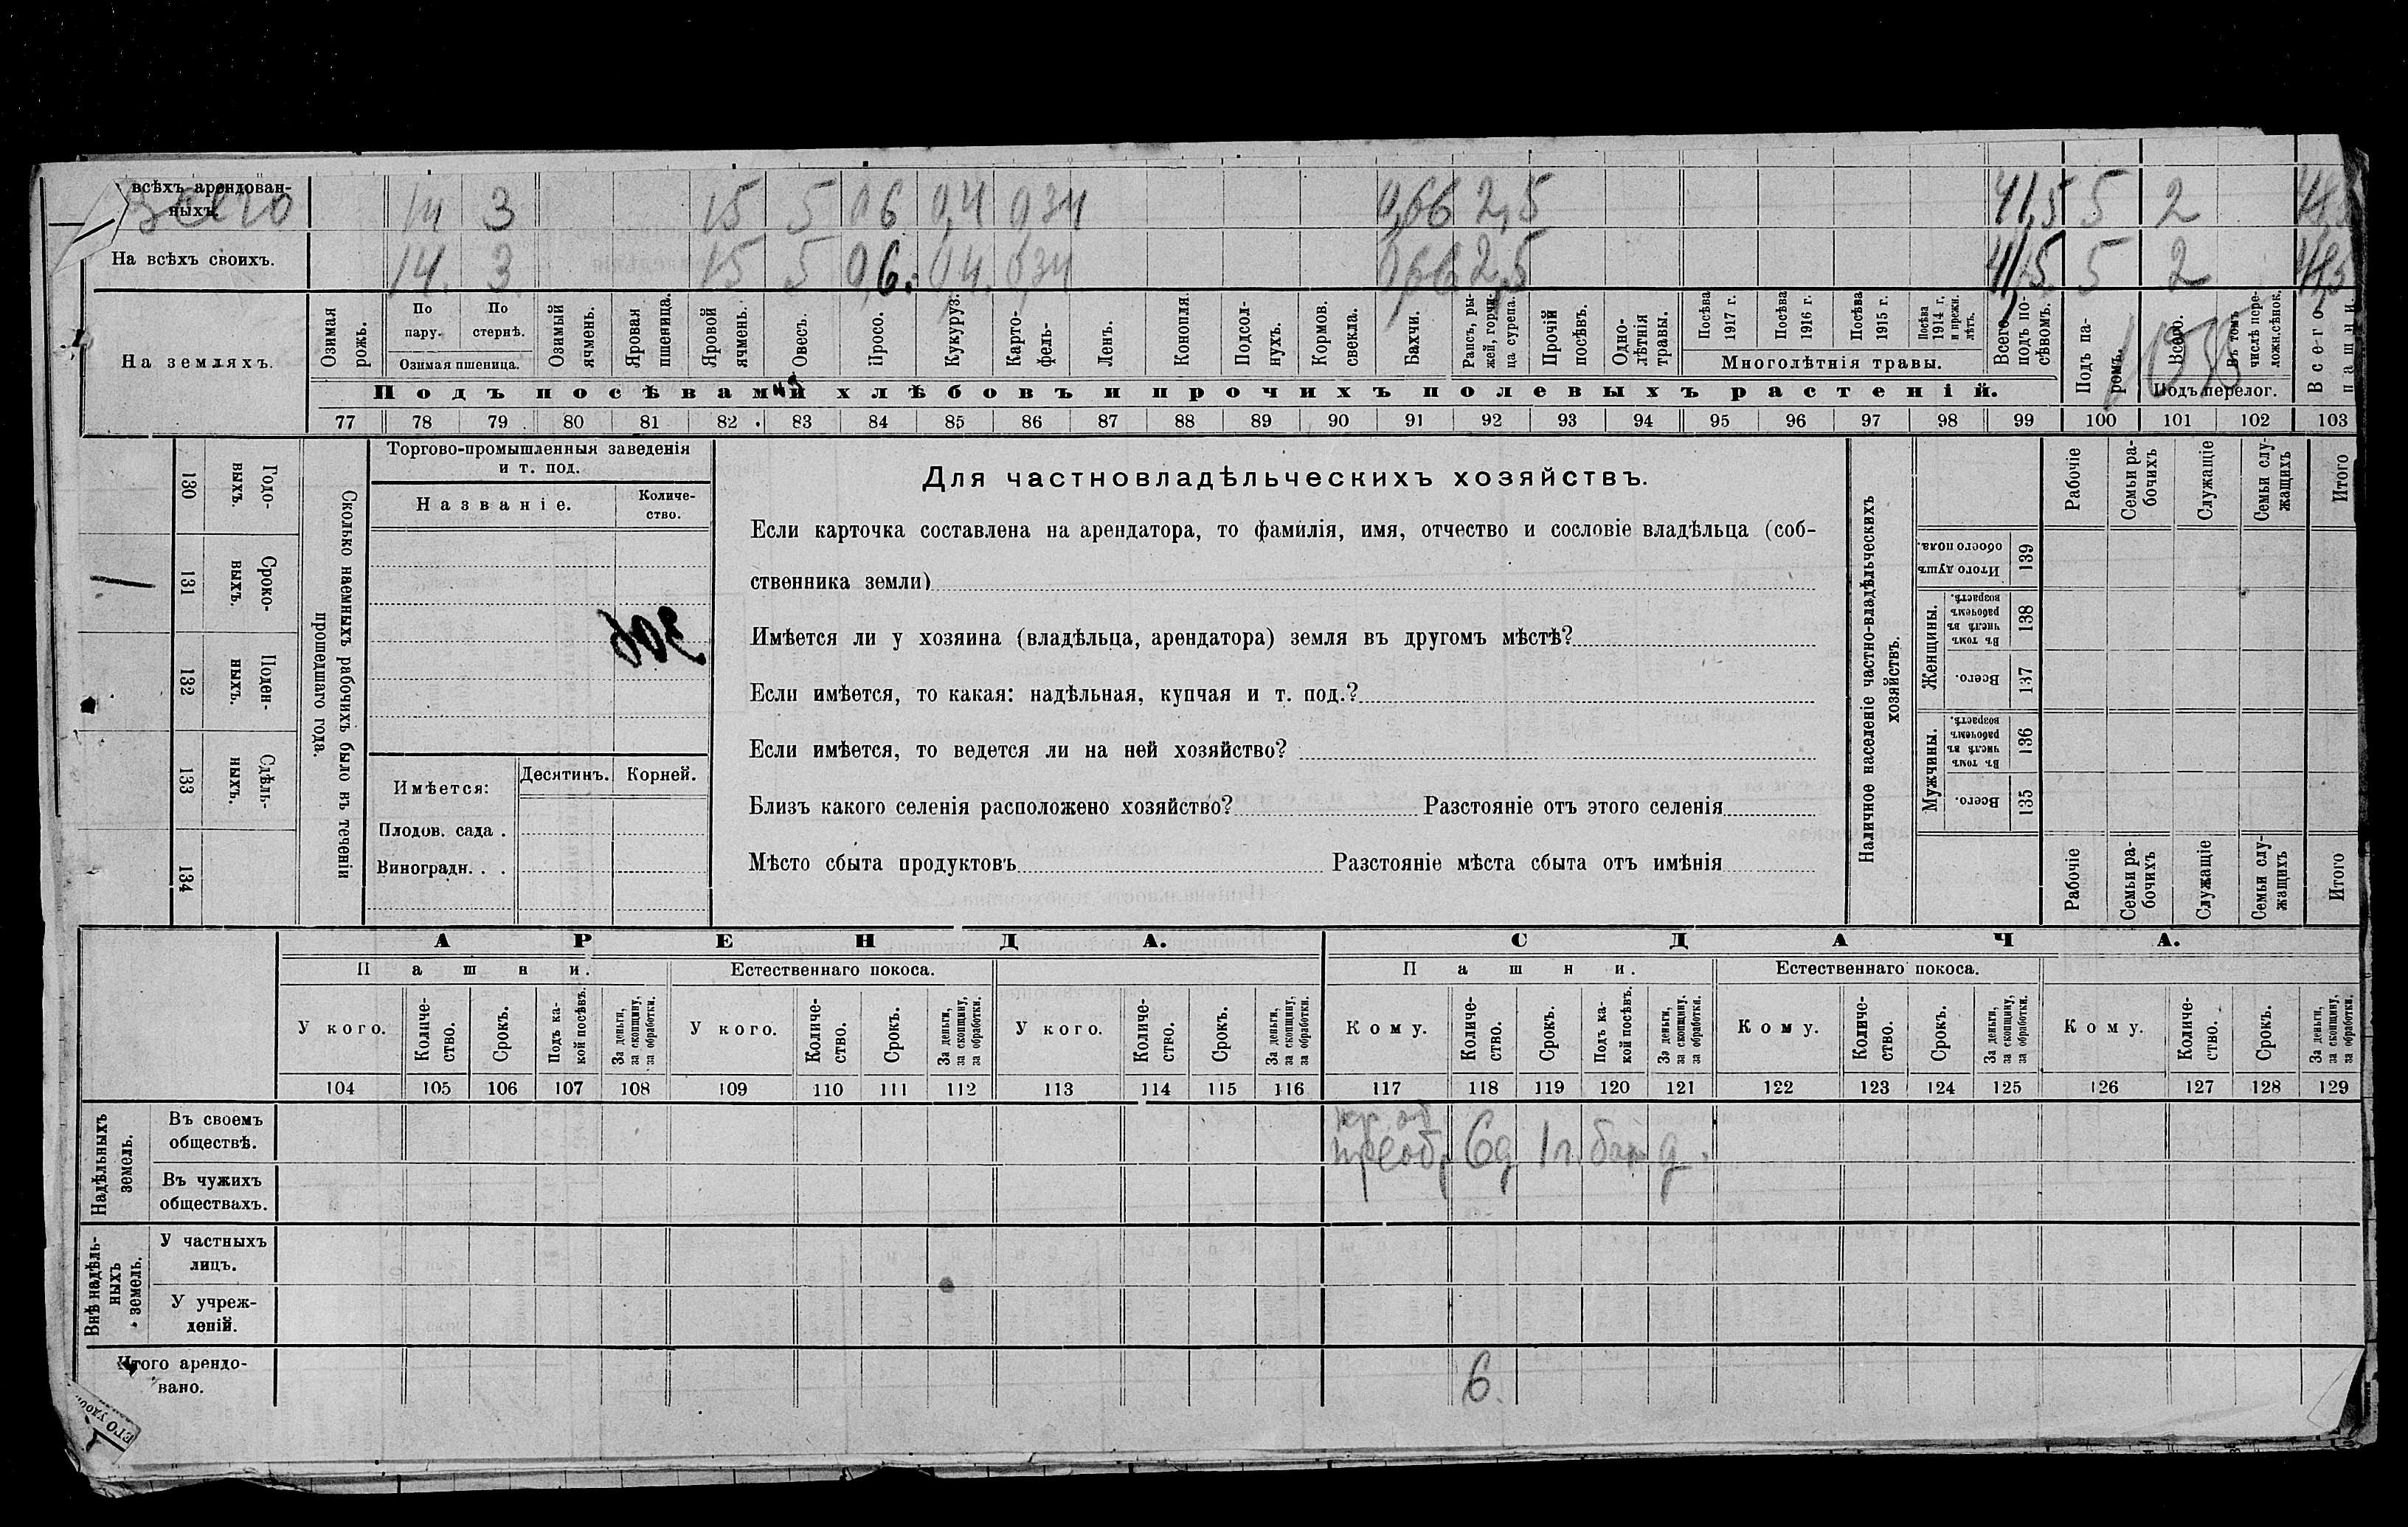 всѣхъ арендован-
ныхъ.
Всего 14 3 15 5 0,6 0,4 0,34 0,66 2,5 41,5 5 2 48,5
На всѣхъ своихъ. 14. 3 15 5 0,6. 0,4. 0,34 0,66 2,5 41,5 5 2 48,5
На земляхъ.
Озимая рожь.
По пару.
По стернѣ.
Озимая пшеница.
Озимый ячмень.
Яровая пшеница.
Яровой ячмень.
Овесъ.
Просо.
Кукуруз.
Карто-
фель-
Ленъ.
Конопля.
Подсол-
нухъ.
Кормов.
свекла.
Бахчи.
Рапсъ, ры-
жей, горчи-
ца сурепа.
Прочій
посѣвъ.
Одно-
лѣтнія
травы.
Посѣва
1917 г.
Посѣва
1916 г.
Посѣва
1915 г.
Посѣва
1914 г.
и прежн.
лѣтъ.
Многолѣтнія травы.
Всего
подъ по-
сѣвомъ.
Подъ па-
ромъ.
Всего.
Въ томъ
числѣ пере-
ложн.сѣнок.
Подъ перелог.
Всего
пашни.
Подъ посѣвами хлѣбовъ и прочихъ полевыхъ растеній.
77 78 79 80 81 82 83 84 85 86 87 88 89 90 91 92 93 94 95 96 97 98 99 100 101 102 103
130 Годо-
выхъ.
131 Сроко-
выхъ.
132 Поден-
ныхъ.
133 Сдѣль-
ныхъ.
134
Сколько наемныхъ рабочихъ было въ теченіи
прошедшаго года.
Торгово-промышленныя заведенія
и т. под.
Названіе.
Количе-
ство.
Имѣется:
Десятинъ.
Корней.
Плодов. сада .
Виноградн. . .
Для частновладѣльческихъ хозяйствъ.
Если карточка составлена на арендатора, то фамилія, имя, отчество и сословіе владѣльца (соб-
ственника земли)
Имѣется ли у хозяина (владѣльца, арендатора) земля въ другомъ мѣстѣ?
Если имѣется, то какая: надѣльная, купчая и т. под.?
Если имѣется, то ведется ли на ней хозяйство?
Близъ какого селенія расположено хозяйство? Разстояніе отъ этого селенія
Мѣсто сбыта продуктовъ Разстояніе мѣста сбыта отъ имѣнія
Наличное населеніе частно-владѣльческихъ
хозяйствъ.
Рабочіе
Семьи ра-
бочихъ
Служащіе
Семьи слу-
жащихъ
Итого
Итого душъ
обоего пола.
139
Женщины.
Въ томъ
числѣ въ
рабочемъ
возрастѣ.
138
Всего.
137
Мужчины.
Въ томъ
числѣ въ
рабочемъ
возрастѣ.
136
Всего.
135
Рабочіе
Семьи ра-
бочихъ
Служащіе
Семьи слу-
жащихъ
Итого
АРЕНДА. СДАЧА.
Пашни. Естественнаго покоса. Пашни. Естественнаго покоса.
У кого.
Количе-
ство.
Срокъ.
Подъ ка-
кой посѣвъ.
За деньги,
за скопщину,
за обработки.
У кого.
Количе-
ство.
Срокъ.
За деньги,
за скопщину,
за обработки.
У кого.
Количе-
ство.
Срокъ.
За деньги,
за скопщину,
за обработки.
Кому.
Количе-
ство.
Срокъ.
Подъ ка-
кой посѣвъ.
За деньги,
за скопщину,
за обработки.
Кому.
Количе-
ство.
Срокъ.
За деньги,
за скопщину,
за обработки.
Кому.
Количе-
ство.
Срокъ.
За деньги,
за скопщину,
за обработки.
104 105 106 107 108 109 110 111 112 113 114 115 116 117 118 119 120 121 122 123 124 125 126 127 128 129
Надѣльныхъ
земель.
Въ своемъ
обществѣ.
6д 1г.
Въ чужихъ
обществахъ.
Внѣ надѣль-
ныхъ
земель.
У частныхъ
лицъ.
У учреж-
деній.
Итого арендо-
вано.
6.